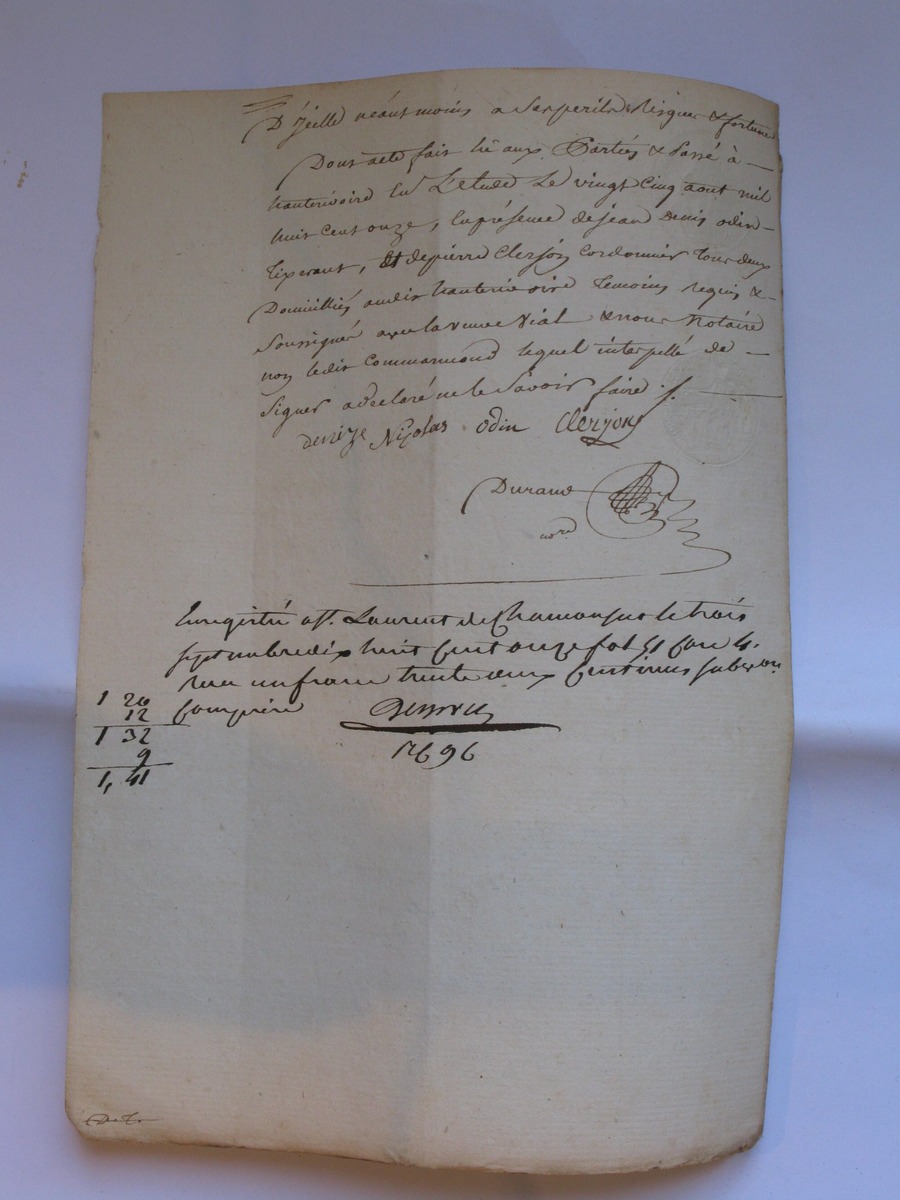 D'ycelle néantmoins a Ses perils Risques & fortune
Dont acte fait lû aux Parties & Passé à
hauterivoire En L'etude Le vingt Cinq aout mil
huit Cent onze, En présence de jean Denis odin
Tixerant, Et de pierre Clerjon Cordonnier tous deux
Domicilliés audit hauterivoire temoins requis &
Soussignés avec la veuve vial & nous Notaire
non ledit Commarmond lequel interpellé de
Signer a declaré ne le Savoir faire ./.
denize Nicolas odin Clerjon
Durand
nore
Enregistré a St. Laurent de Chamousset le trois
septembre dix huit Cent onze fol 51 Case 4.
reçu un franc trente deux Centimes subvon.
Comprise
1 20
12
1 32
9
1, 41
1696